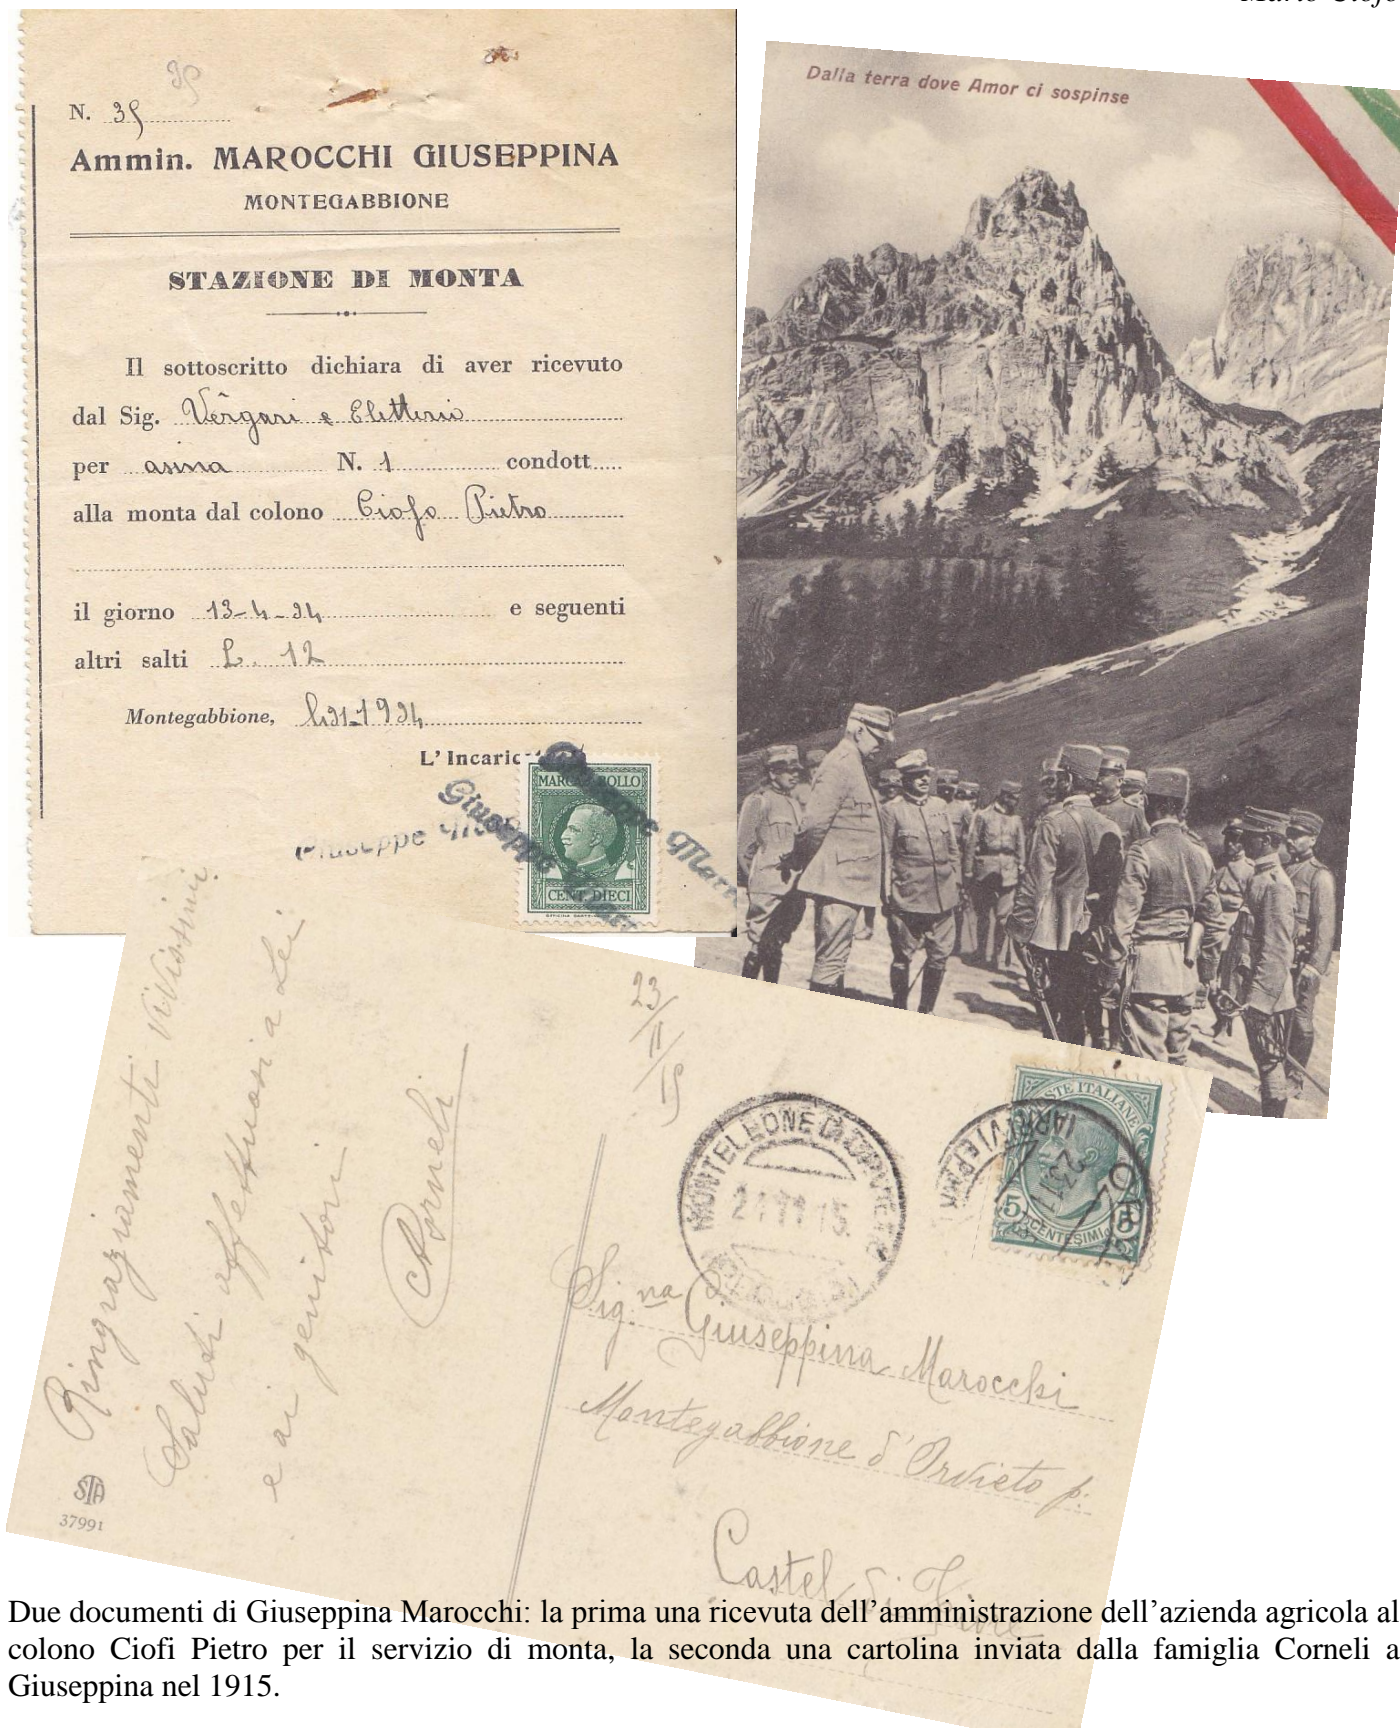 Mario Ciofo
N. 35
Ammin. MAROCCHI GIUSEPPINA
MONTEGABBIONE
STAZIONE DI MONTA
Il sottoscritto dichiara di aver ricevuto
dal Sig. Vergari e Eletterio
per asina N. 1 condott
alla monta dal colono Ciofo Pietro
il giorno 13-4-34 e seguenti
altri salti L. 12
Montegabbione, 1934
L' Incaric
Giuseppe
Giuseppe
MARCA BOLLO
CENT. DIECI
Dalla terra dove Amor ci sospinse
Ringraziamenti vivissimi
Saluti affettuosi a Lei
e ai genitori
Corneli
STA
37991
23/11/15
MONTELEONE D'ORVIETO
21.11.15
POSTE ITALIANE
5 CENTESIMI 5
Sig.na Giuseppina Marocchi
Montegabbione d'Orvieto p:
Castel di Fiore
Due documenti di Giuseppina Marocchi: la prima una ricevuta dell'amministrazione dell'azienda agricola al
colono Ciofi Pietro per il servizio di monta, la seconda una cartolina inviata dalla famiglia Corneli a
Giuseppina nel 1915.